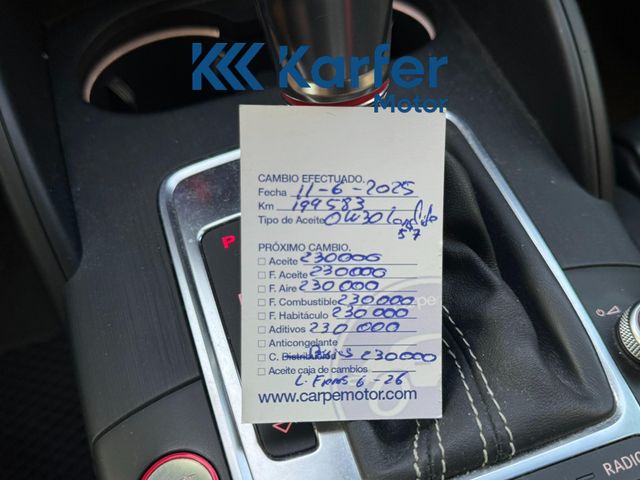 Karfer
Motor
CAMBIO EFECTUADO.
Fecha 11-6-2025
Km 199583
Tipo de Aceite 0W30 Longlife
57
PRÓXIMO CAMBIO.
Aceite 230000
F. Aceite 230000
F. Aire 230000
F. Combustible 230.000
F. Habitáculo 230.000
Aditivos 230 000
Anticongelante
C. Distribución 230000
Aceite caja de cambios
L. Frenos 6-26
www.carpemotor.com
P
RADIO